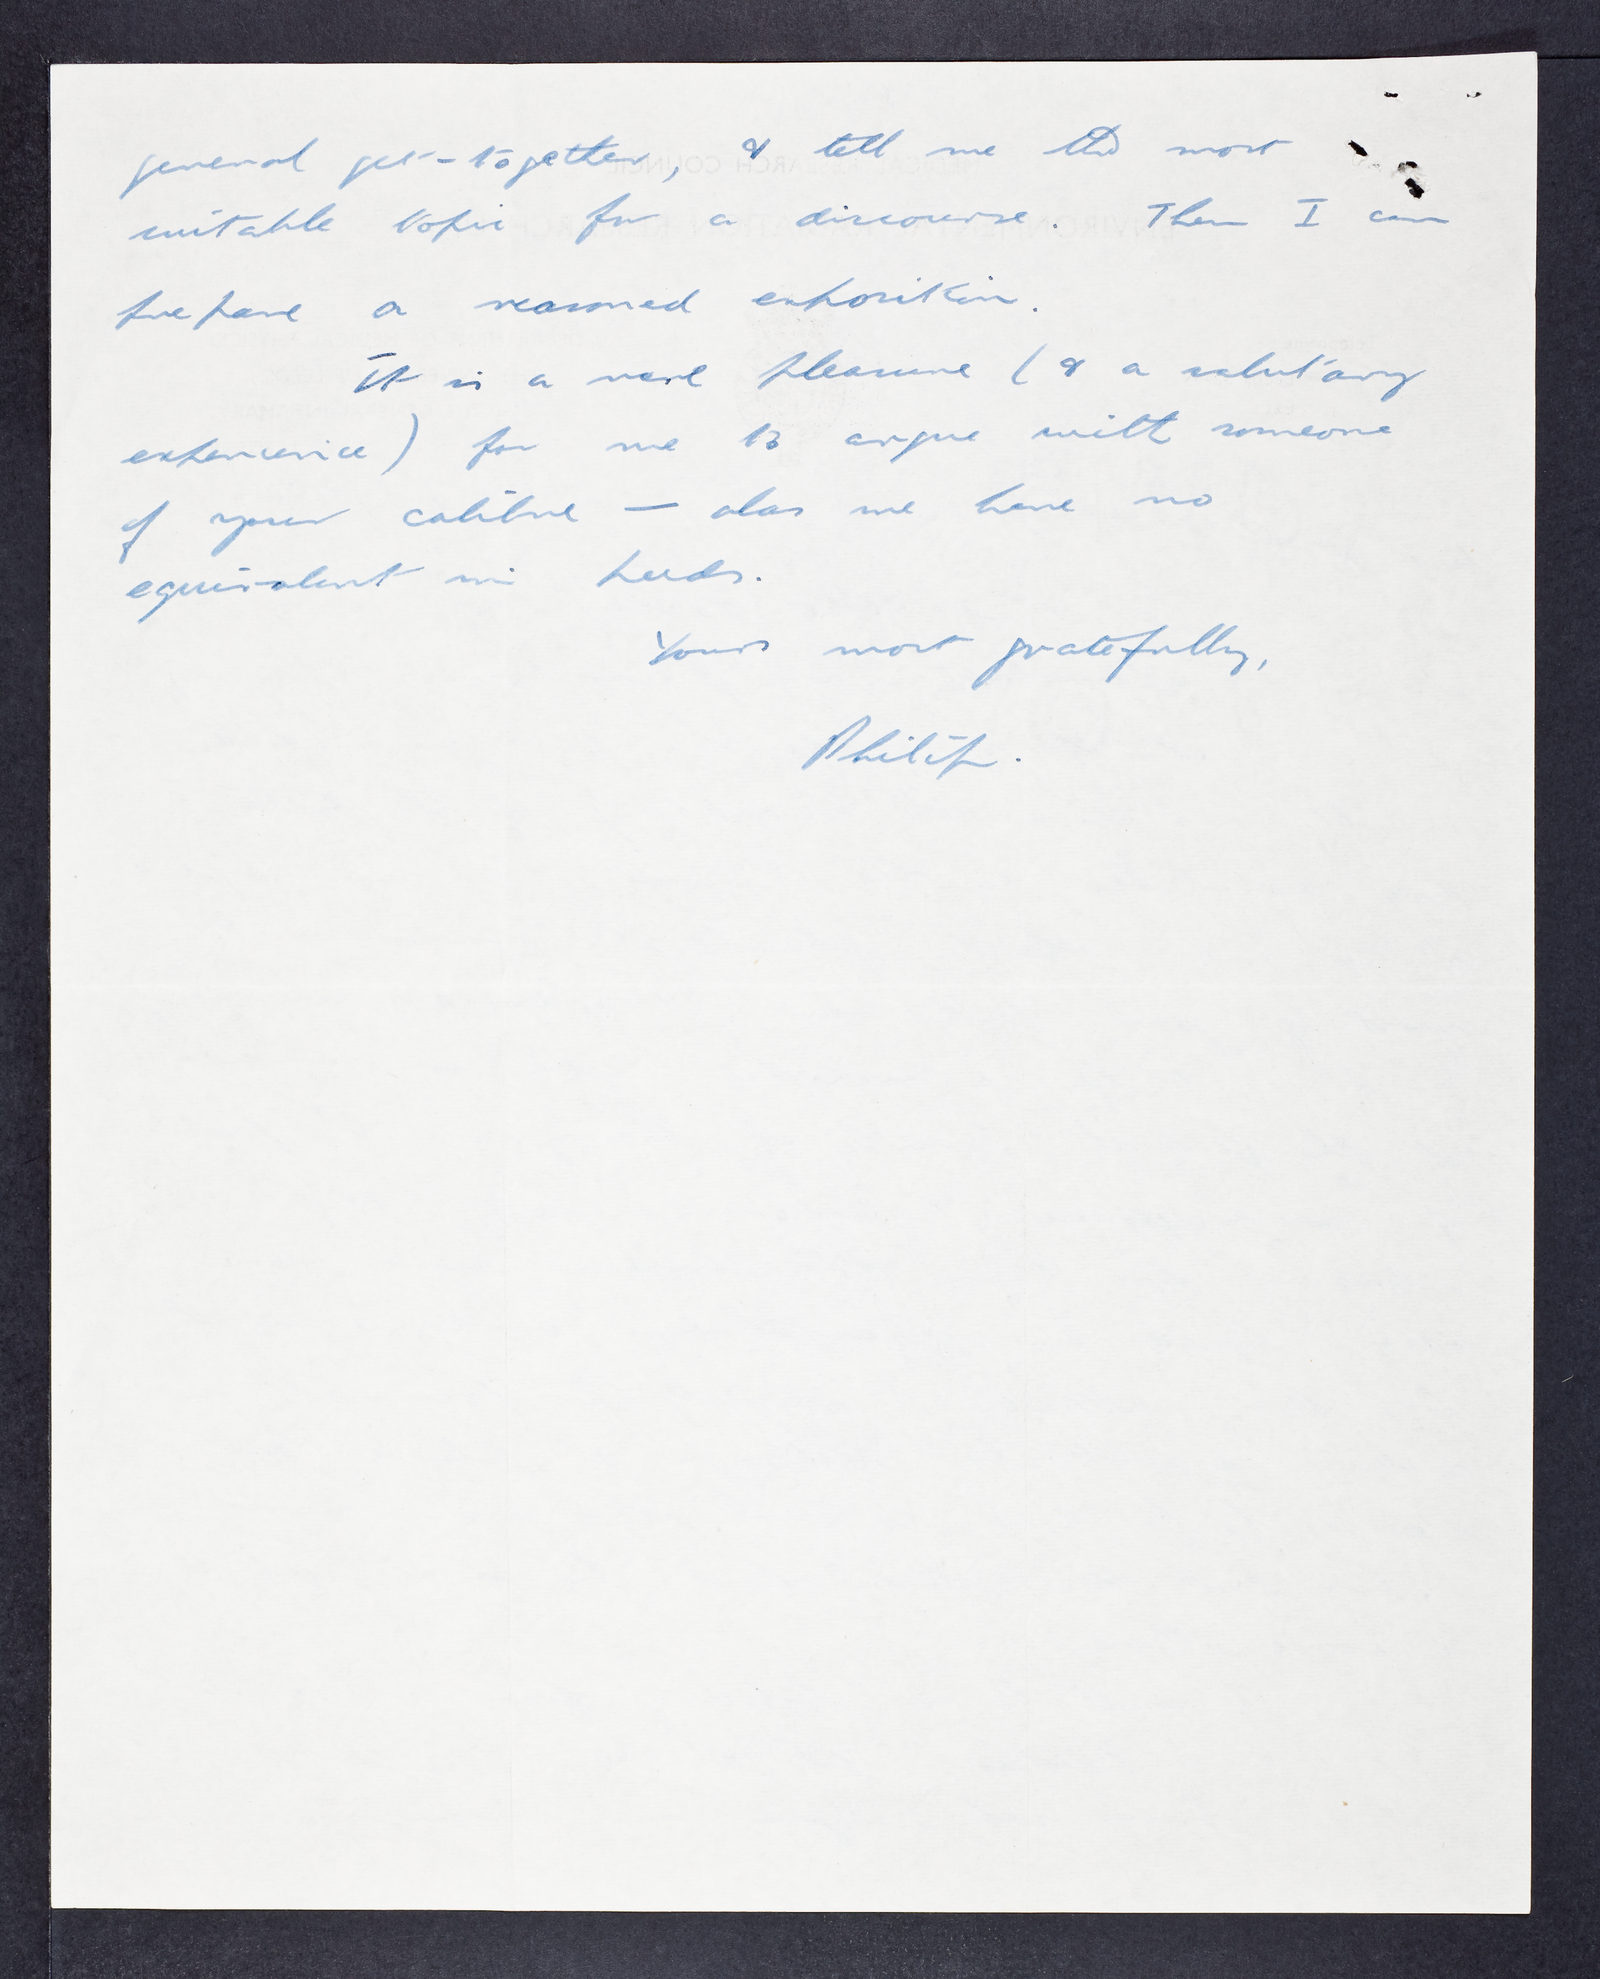 general get-together, & tell me the most
suitable topic for a discourse. Then I can
prepare a reasoned exposition.
It is a rare pleasure (& a salutary
experience) for me to argue with someone
of your calibre — alas we have no
equivalent in Leeds.
Yours most gratefully,
Philip.